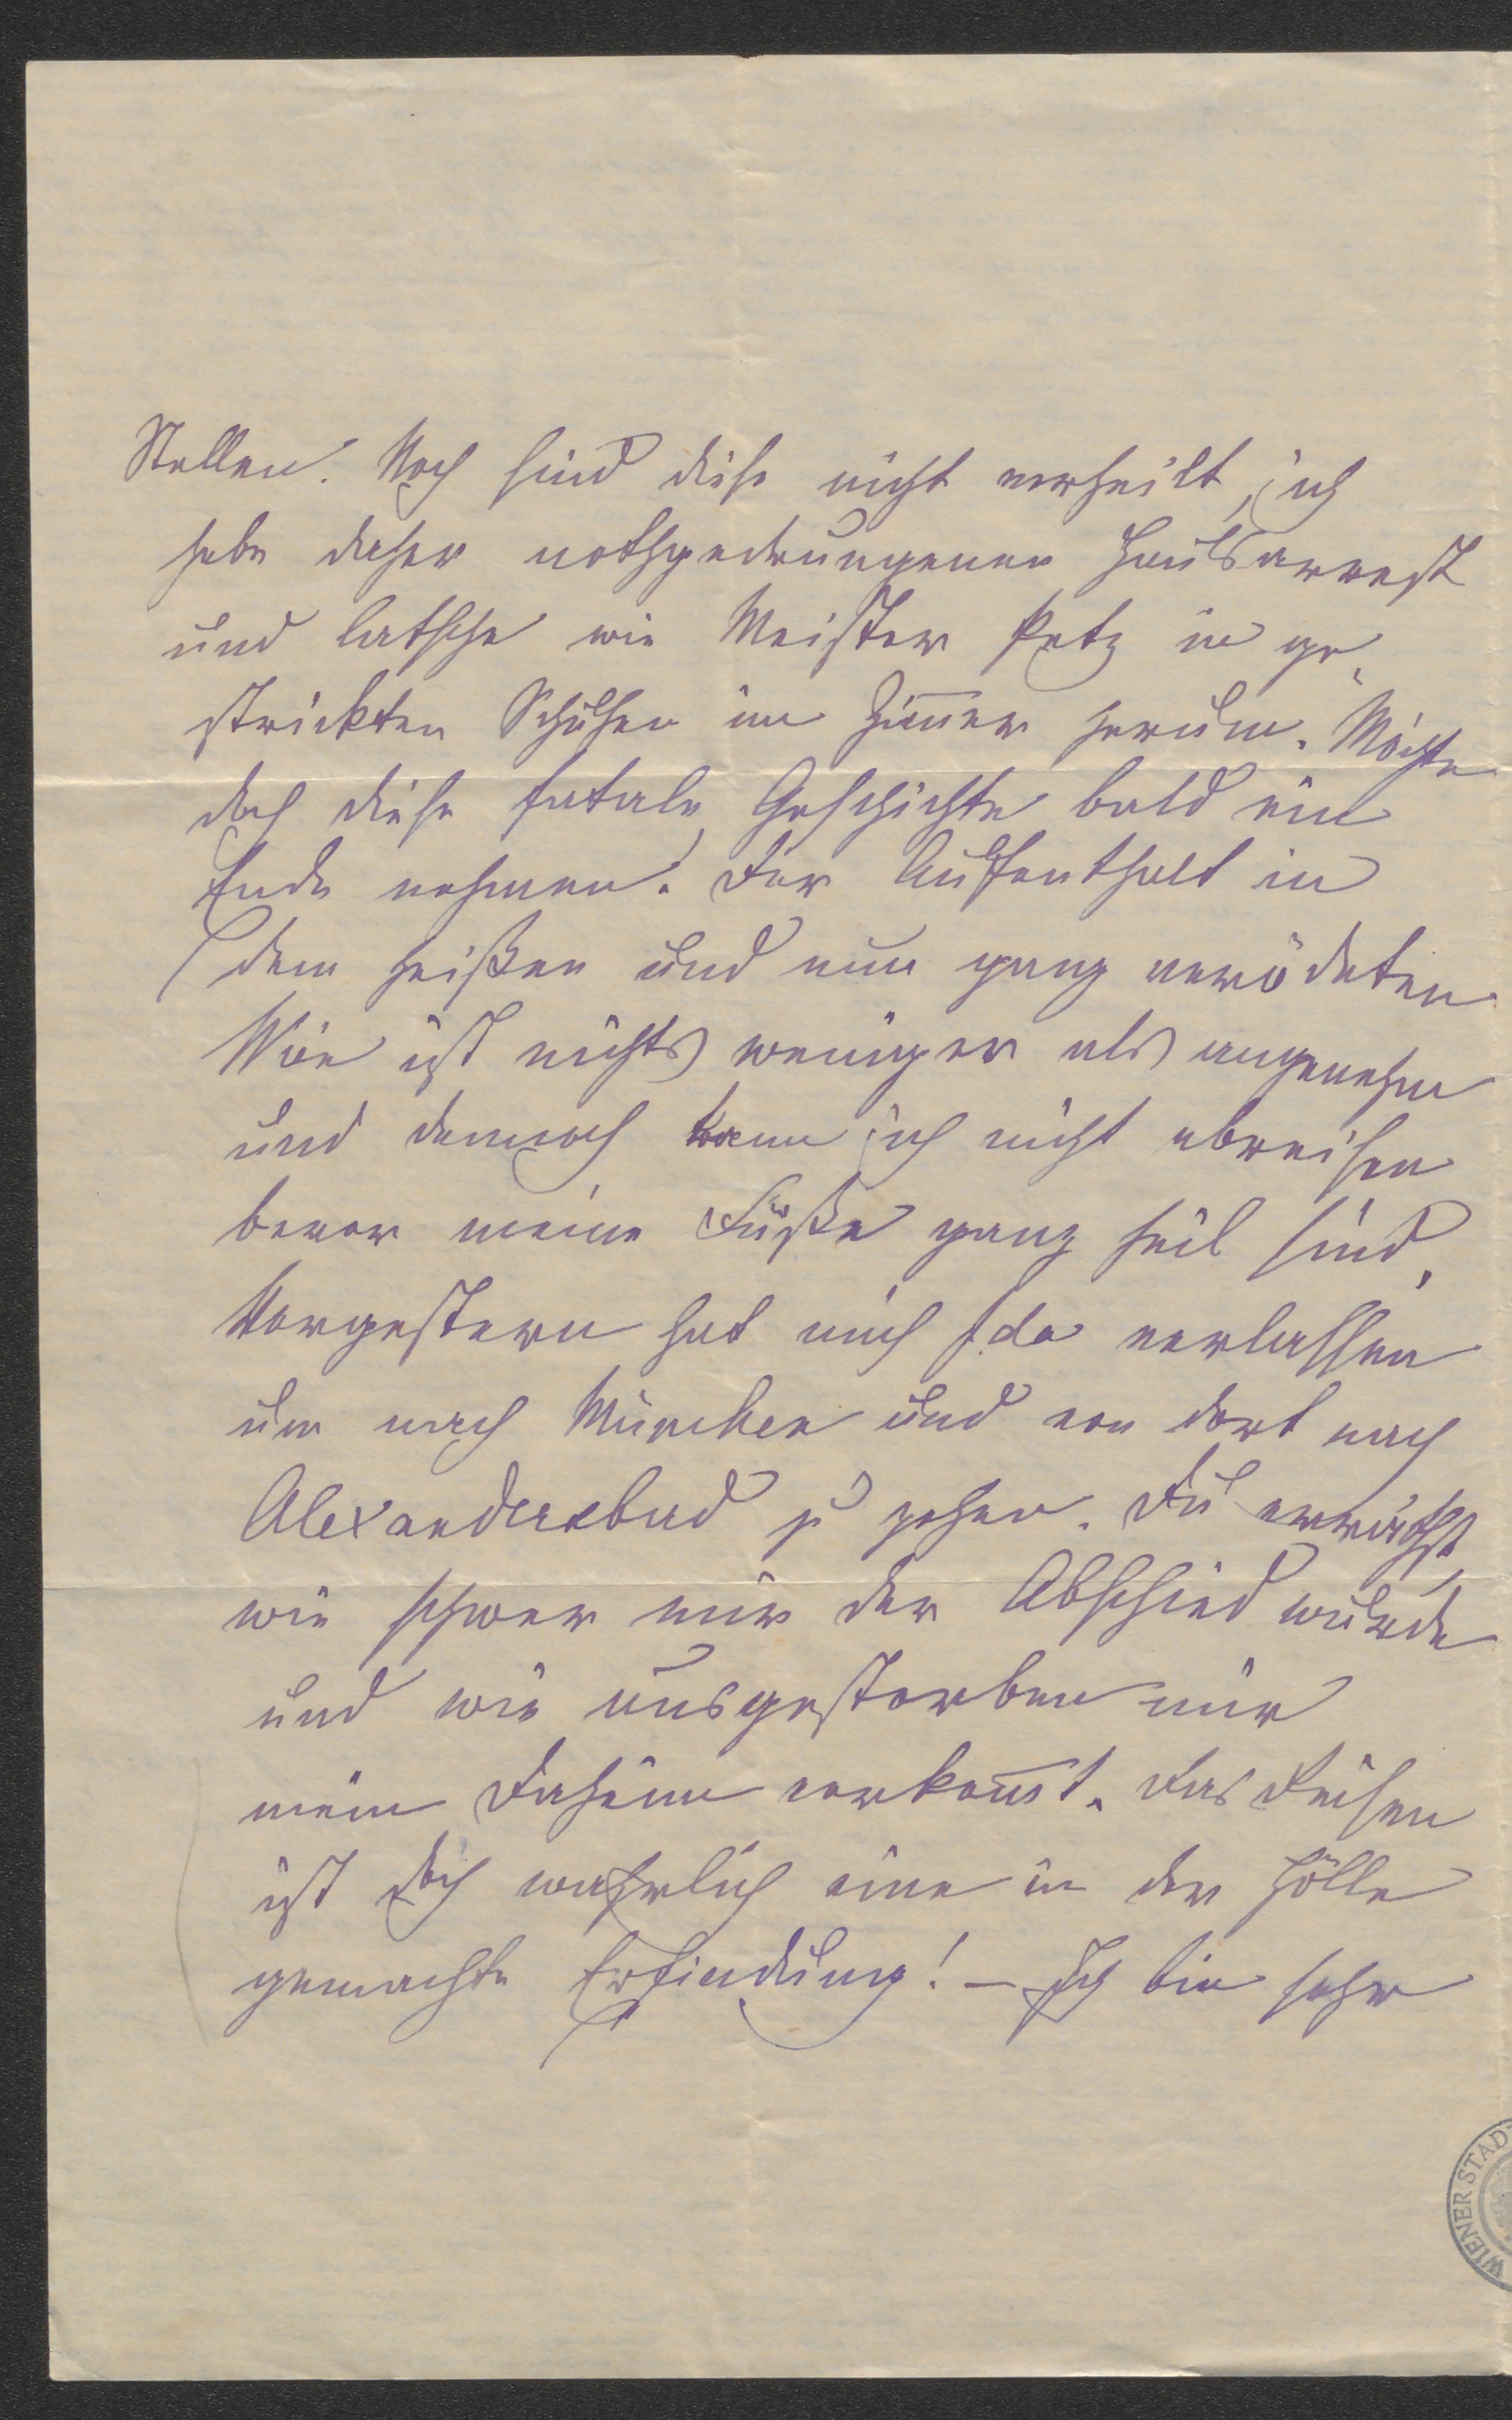 Stellen. Noch sind diese nicht verheilt, ich
habe daher nothgedrungenen Hausarrest
und latsche wie Meister Petz in ge-
strickten Schuhen im Zimmer herum. Möchte
doch diese fatale Geschichte bald ein
Ende nehmen. Der Aufenthalt in
dem heißen und nun ganz verödeten
Wien ist nichts weniger als angenehm
und dennoch kann ich nicht abreisen
bevor meine Füße ganz heil sind.
Vorgestern hat mich Ida verlassen
um nach München und von dort nach
Alexandersbad zu gehen. Du
wie schwer mir der Abschied wurde
und wie ausgestorben mir
mein Daheim vorkommt. Das
ist doch wahrlich eine in der Hölle
gemachte Erfindung! – Ich bin sehr
WIENER STAD